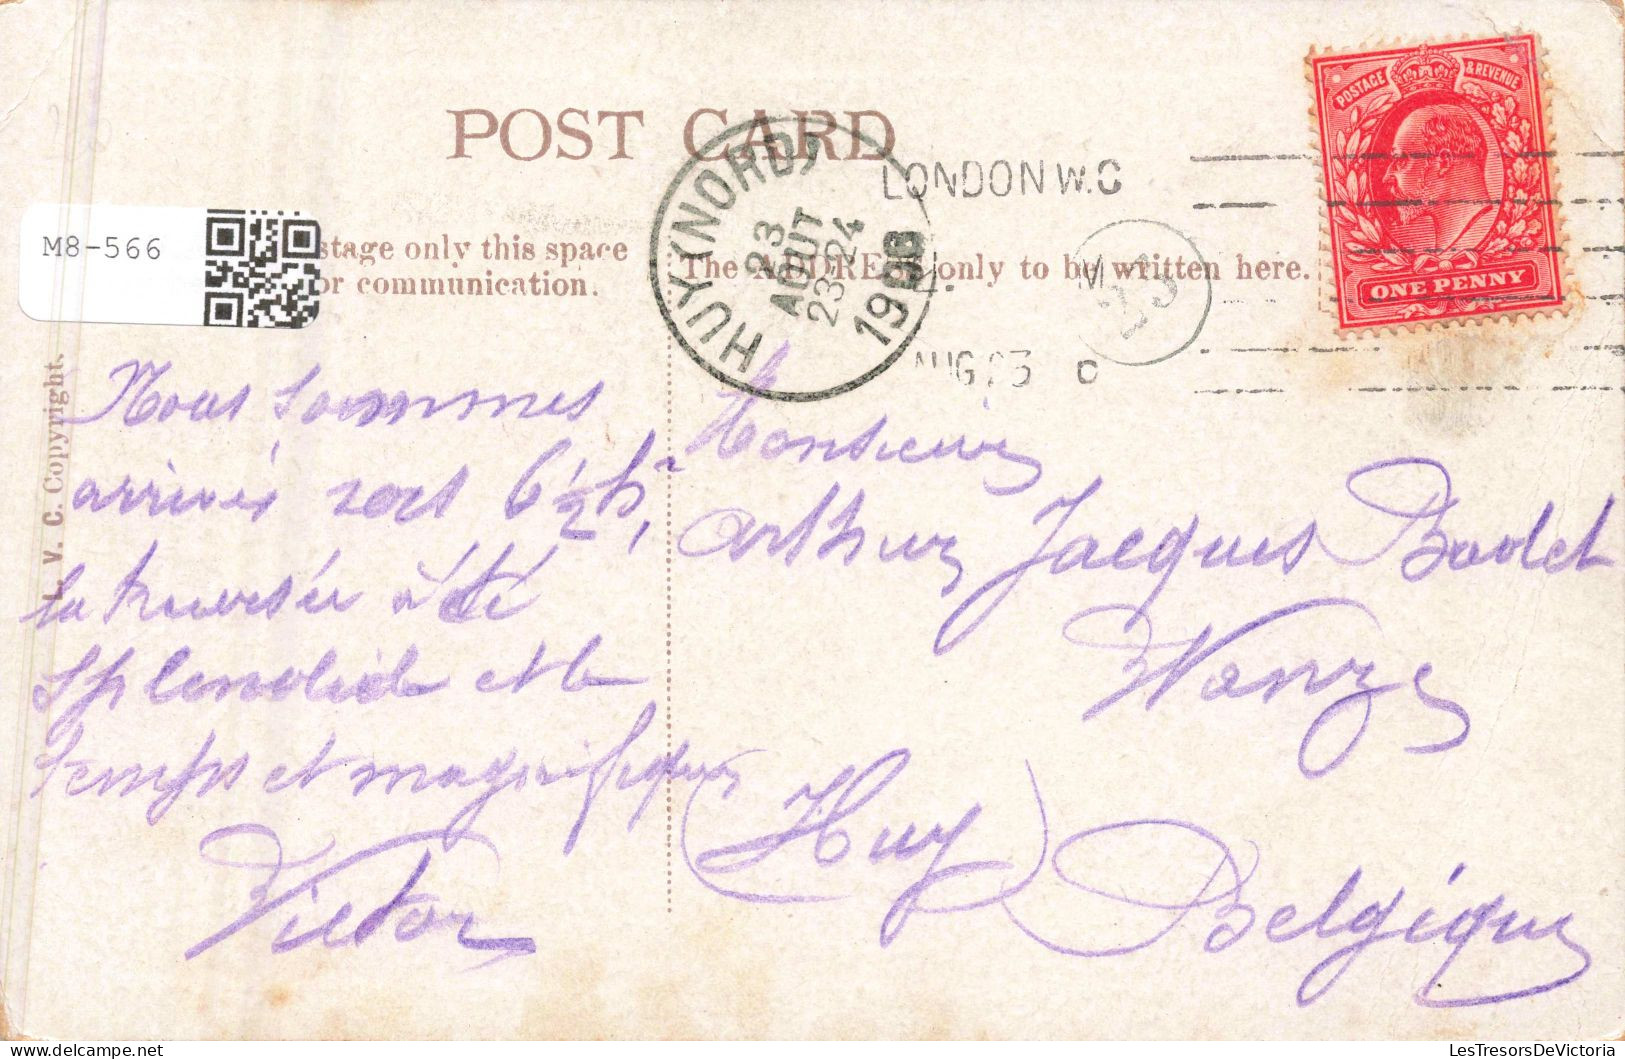 POST CARD
M8-566
stage only this space
or communication.
The ADDRESS only to be written here.
L. V. C. Copyright.
HUY (NORD)
23
AOUT
23-24
LONDON W.C
AUG 23
POSTAGE & REVENUE
ONE PENNY
Nous sommes
arrivés vers 6 1/2 h,
la traversée a été
splendide et le
temps et magnifique
Victor
Monsieur
Arthur Jacques Bodet
Wanze
(Huy)
Belgique
LesTresorsDeVictoria